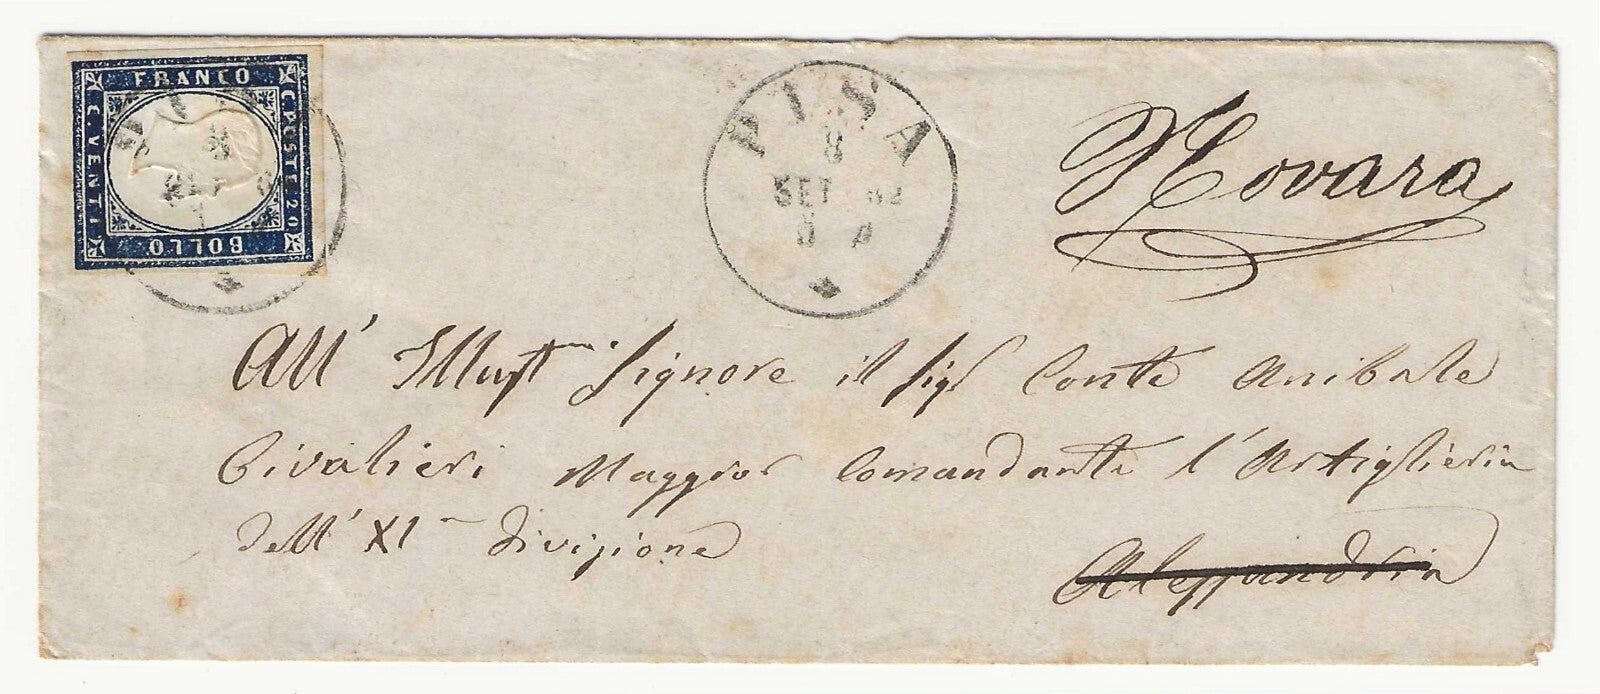 FRANCO
C. POSTE 20
BOLLO
C. VENTI
PISA
8
SET 62
Novara
All' Illust.mo Signore il Sig.r Conte Anibale
Civalieri Maggior Comandante l'Artiglieria
dell' XI Divisione
Alessandria